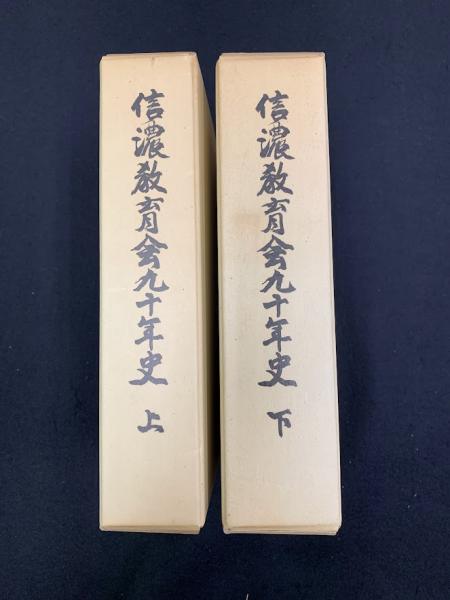 信濃教育会九十年史 上
信濃教育会九十年史 下